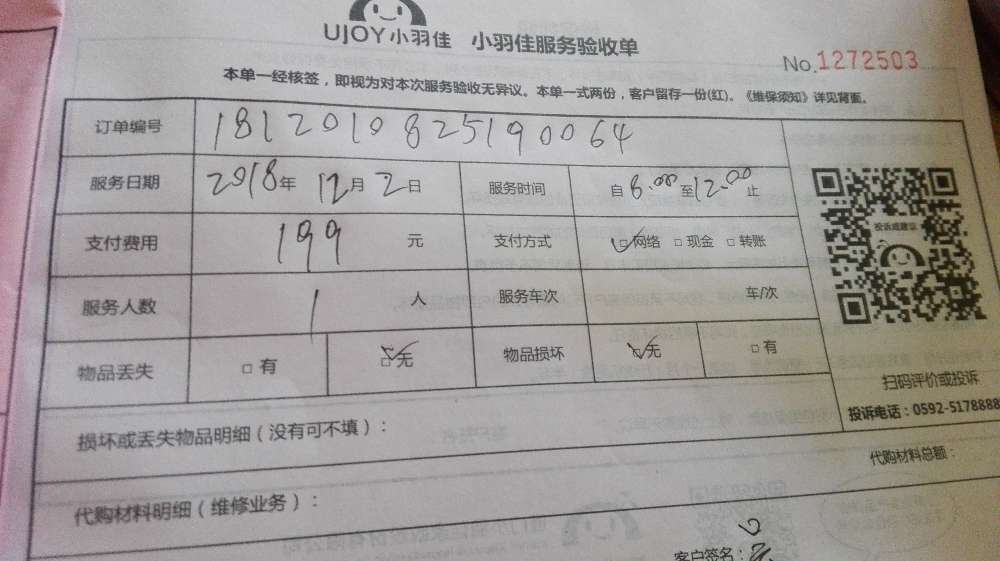 UJOY小羽佳 小羽佳服务验收单
No.1272503
本单一经核签，即视为对本次服务验收无异议。本单一式两份，客户留存一份(红)。《维保须知》详见背面。
订单编号 1812010825190064
服务日期 2018年 12月 2日 服务时间 自 8:00 至 12:00 止
支付费用 199 元 支付方式 ☑网络 □现金 □转账
投诉或建议
服务人数 1 人 服务车次 车/次
物品丢失 □有 ☑无 物品损坏 ☑无 □有
扫码评价或投诉
投诉电话：0592-5178888
损坏或丢失物品明细（没有可不填）：
代购材料总额：
代购材料明细（维修业务）：
客户签名：